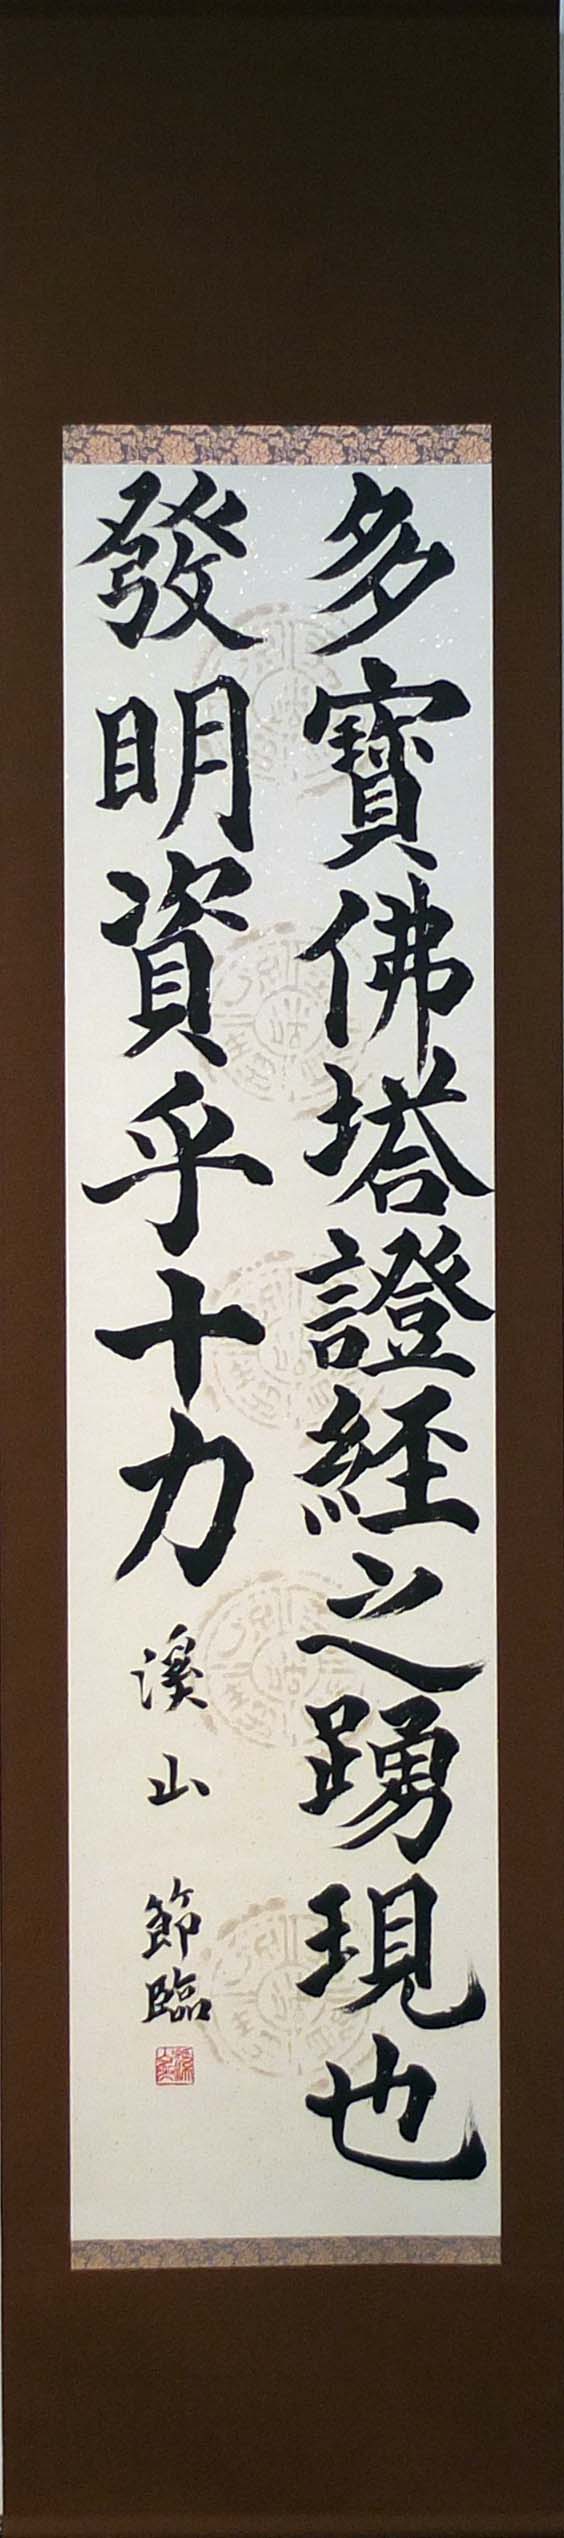 多寶佛塔證經之踴現也
發明資乎十力
溪山 節臨